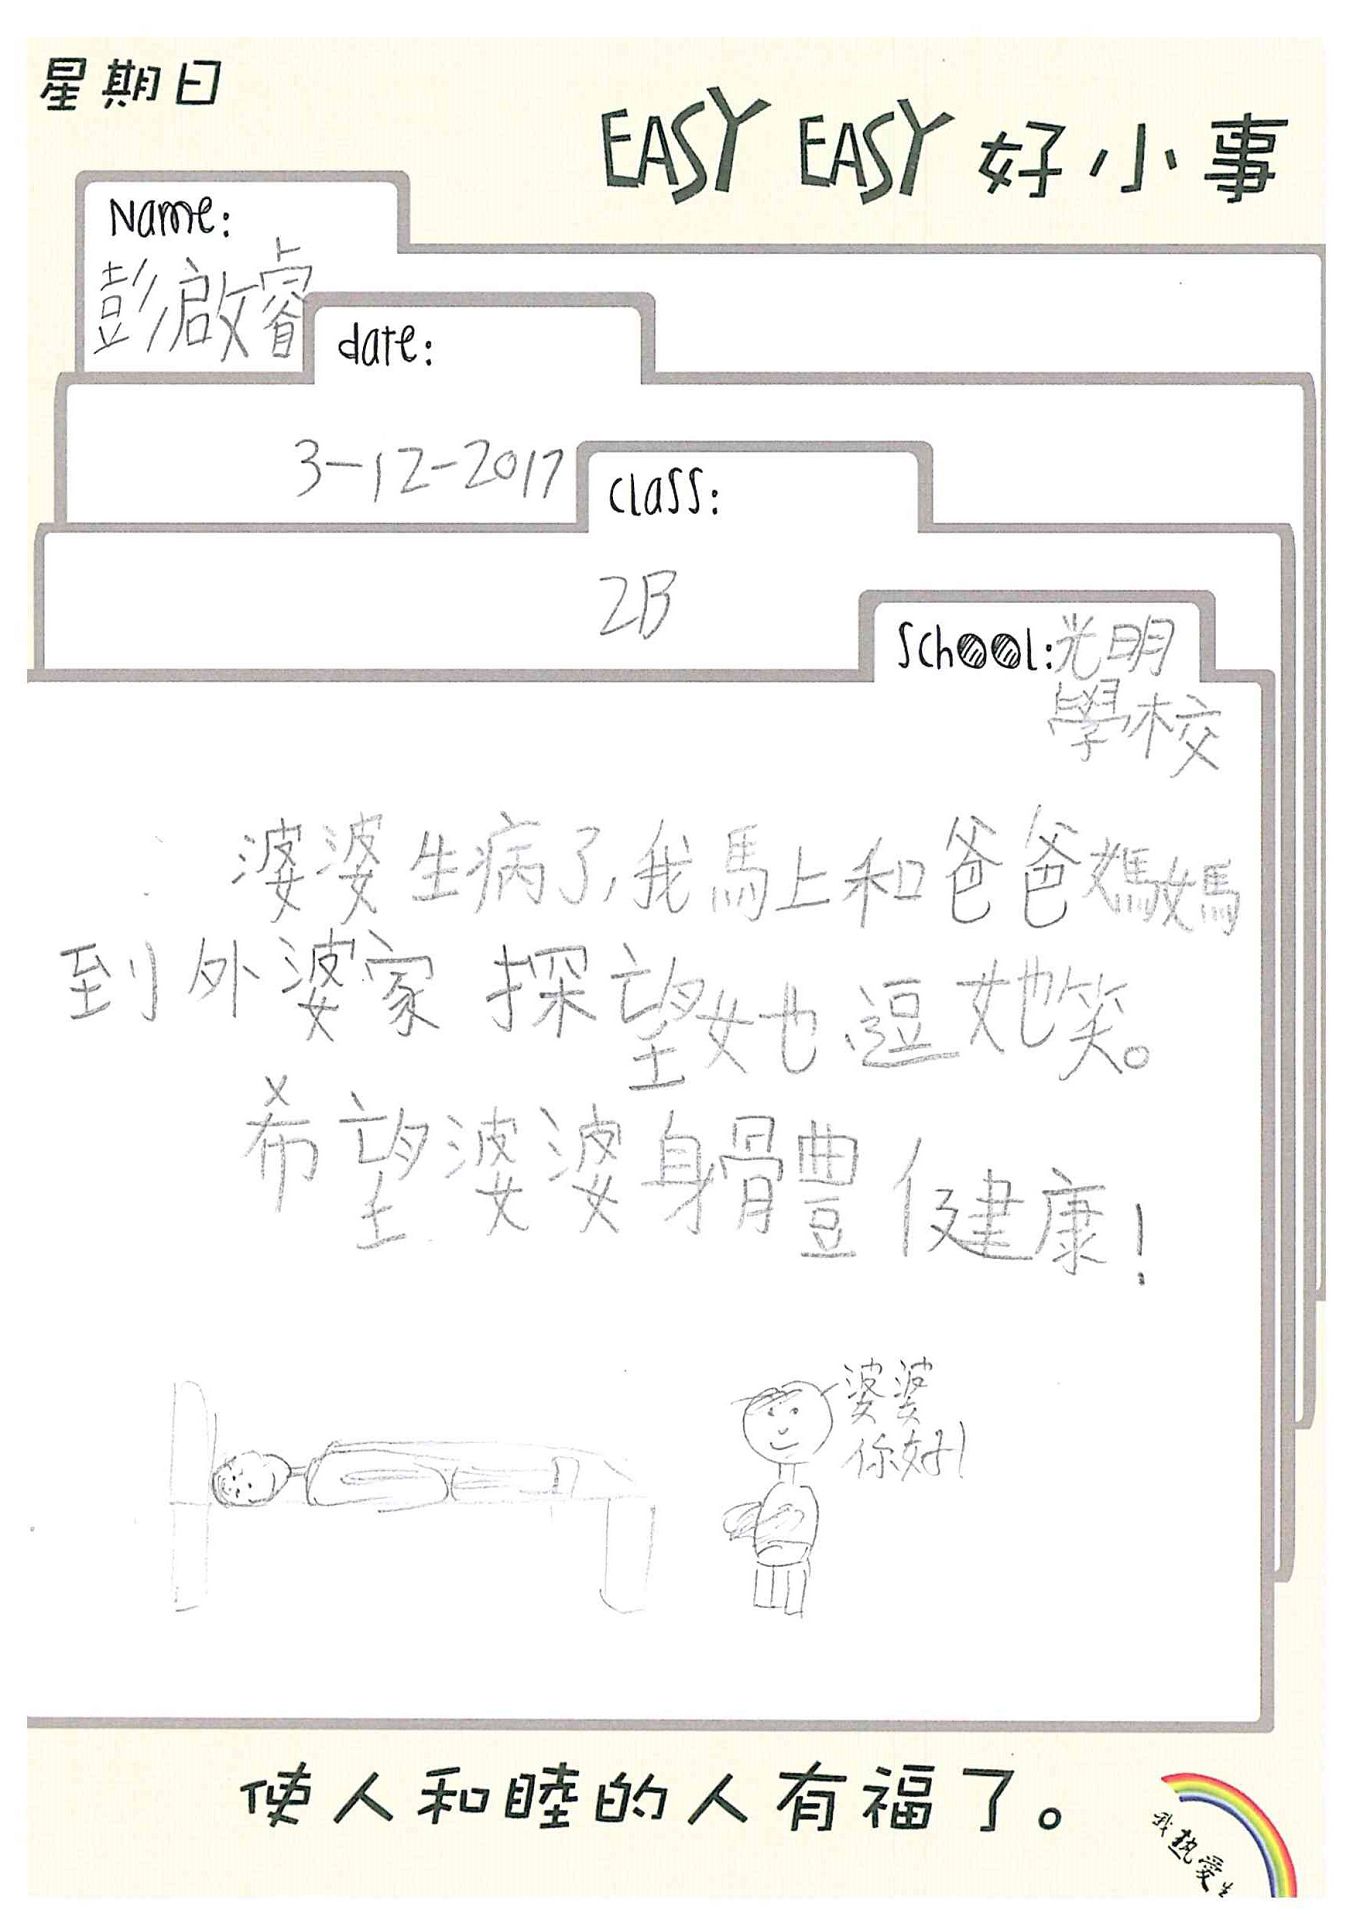 星期日
EASY EASY 好小事
Name:
彭啟睿
date:
3-12-2017
class:
2B
School:光明
學校
婆婆生病了,我馬上和爸爸媽媽
到外婆家探望她,逗她笑。
希望婆婆身體健康!
婆婆
你好!
使人和睦的人有福了。
我熱愛生